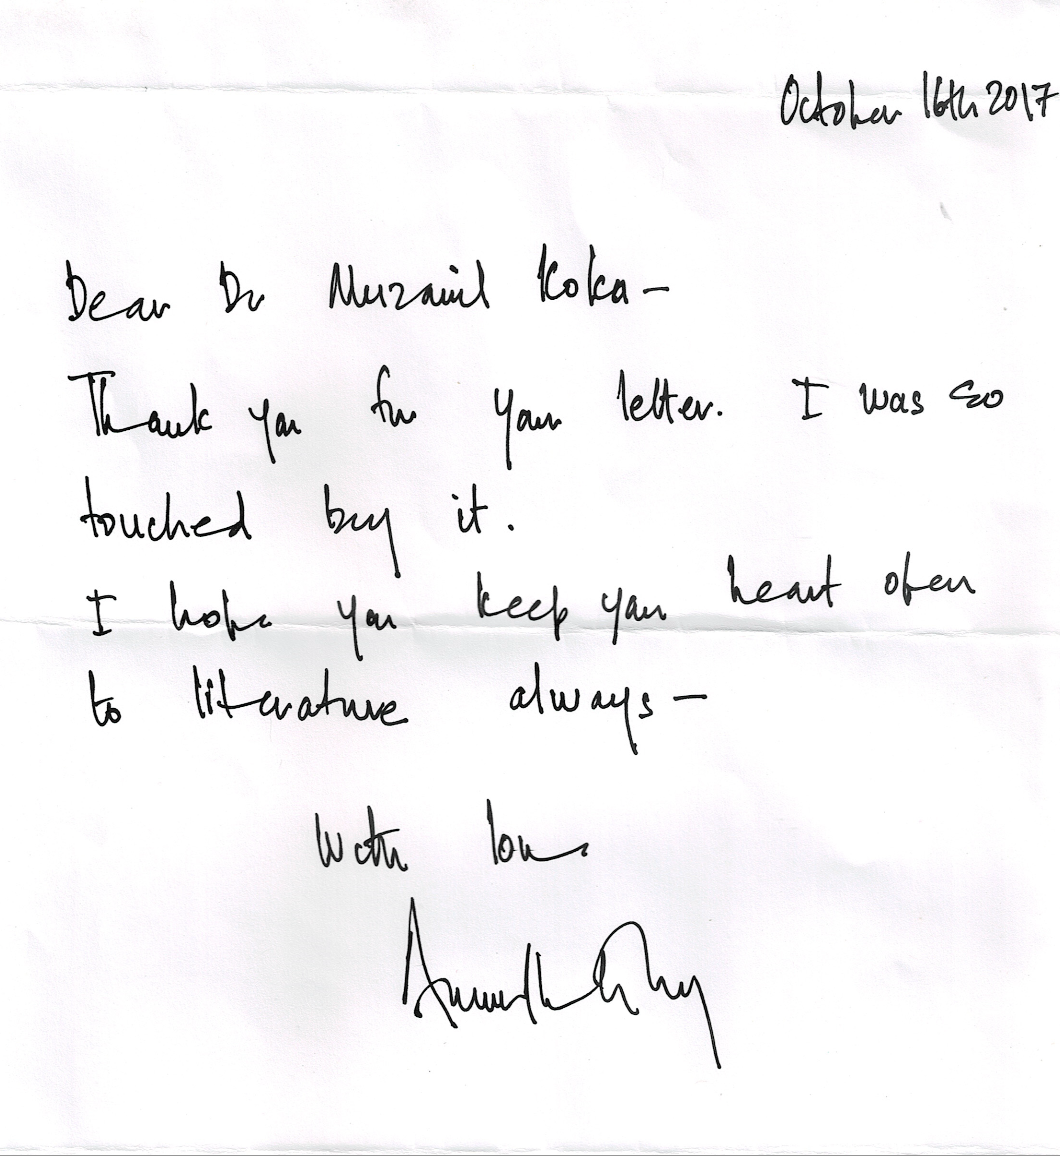 October 16th 2017
Dear Dr Muzamil Koka -
Thank you for your letter. I was so
touched by it.
I hope you keep your heart open
to literature always -
With love